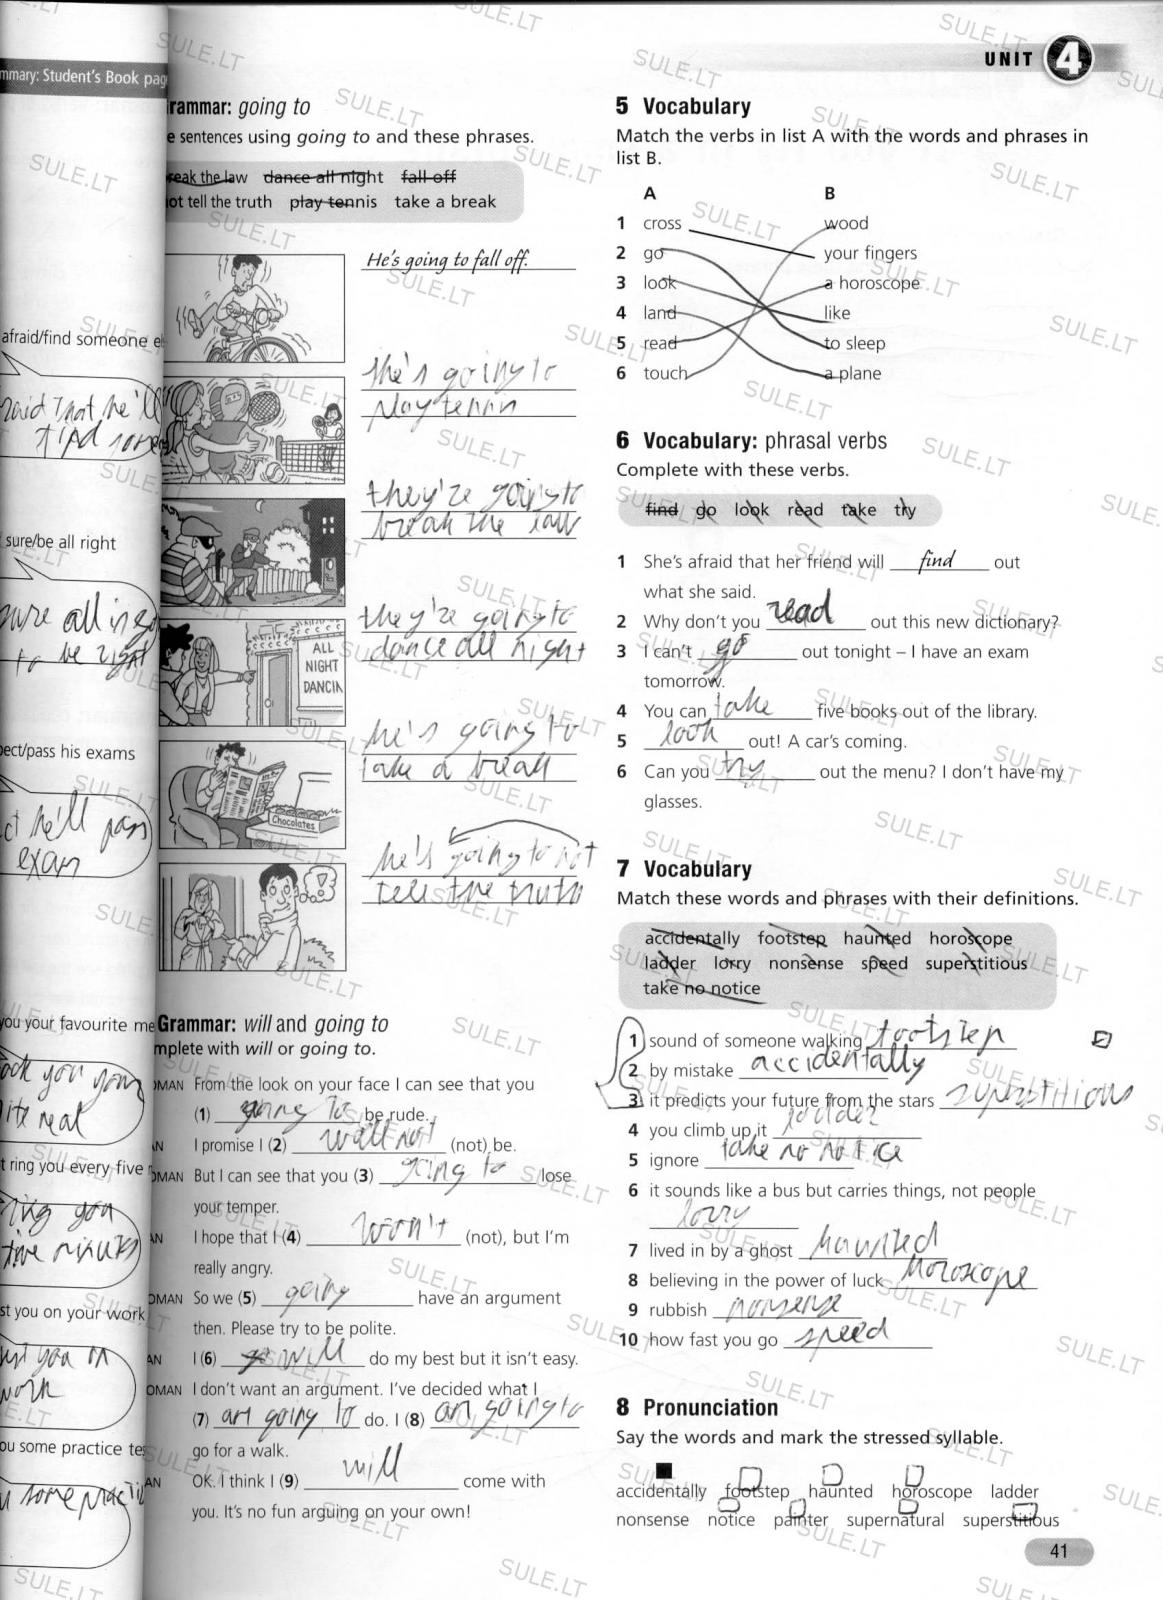 UNIT 4
mmary: Student's Book pag
afraid/find someone e
said that he'll
find some
sure/be all right
sure all is go
to be right
ect/pass his exams
ct he'll pass
exam
you your favourite me
t ring you every five
ring you
five minuts
st you on your work
work
ou some practice te
some practi
rammar: going to
e sentences using going to and these phrases.
reak the law dance all night fall off
ot tell the truth play tennis take a break
He's going to fall off.
she's going to
play tennis
they're going to
break the law
they're going to
dance all night
ALL
NIGHT
DANCIN
he's going to
take a break
Chocolates
he's going to not
tell the truth
Grammar: will and going to
mplete with will or going to.
OMAN From the look on your face I can see that you
(1) going to be rude.
AN I promise I (2) will not (not) be.
OMAN But I can see that you (3) going to lose
your temper.
AN I hope that I (4) won't (not), but I'm
really angry.
OMAN So we (5) going have an argument
then. Please try to be polite.
AN I (6) go will do my best but it isn't easy.
OMAN I don't want an argument. I've decided what I
(7) am going to do. I (8) am going to
go for a walk.
AN OK. I think I (9) will come with
you. It's no fun arguing on your own!
5 Vocabulary
Match the verbs in list A with the words and phrases in
list B.
A B
1 cross wood
2 go your fingers
3 look a horoscope
4 land like
5 read to sleep
6 touch a plane
6 Vocabulary: phrasal verbs
Complete with these verbs.
find go look read take try
1 She's afraid that her friend will find out
what she said.
2 Why don't you read out this new dictionary?
3 I can't go out tonight – I have an exam
tomorrow.
4 You can take five books out of the library.
5 look out! A car's coming.
6 Can you try out the menu? I don't have my
glasses.
7 Vocabulary
Match these words and phrases with their definitions.
accidentally footstep haunted horoscope
ladder lorry nonsense speed superstitious
take no notice
1 sound of someone walking footstep
2 by mistake accidentally
3 it predicts your future from the stars superstitious
4 you climb up it ladder
5 ignore take no notice
6 it sounds like a bus but carries things, not people
lorry
7 lived in by a ghost haunted
8 believing in the power of luck horoscope
9 rubbish nonsense
10 how fast you go speed
8 Pronunciation
Say the words and mark the stressed syllable.
accidentally footstep haunted horoscope ladder
nonsense notice painter supernatural superstitious
41
SULE.LT